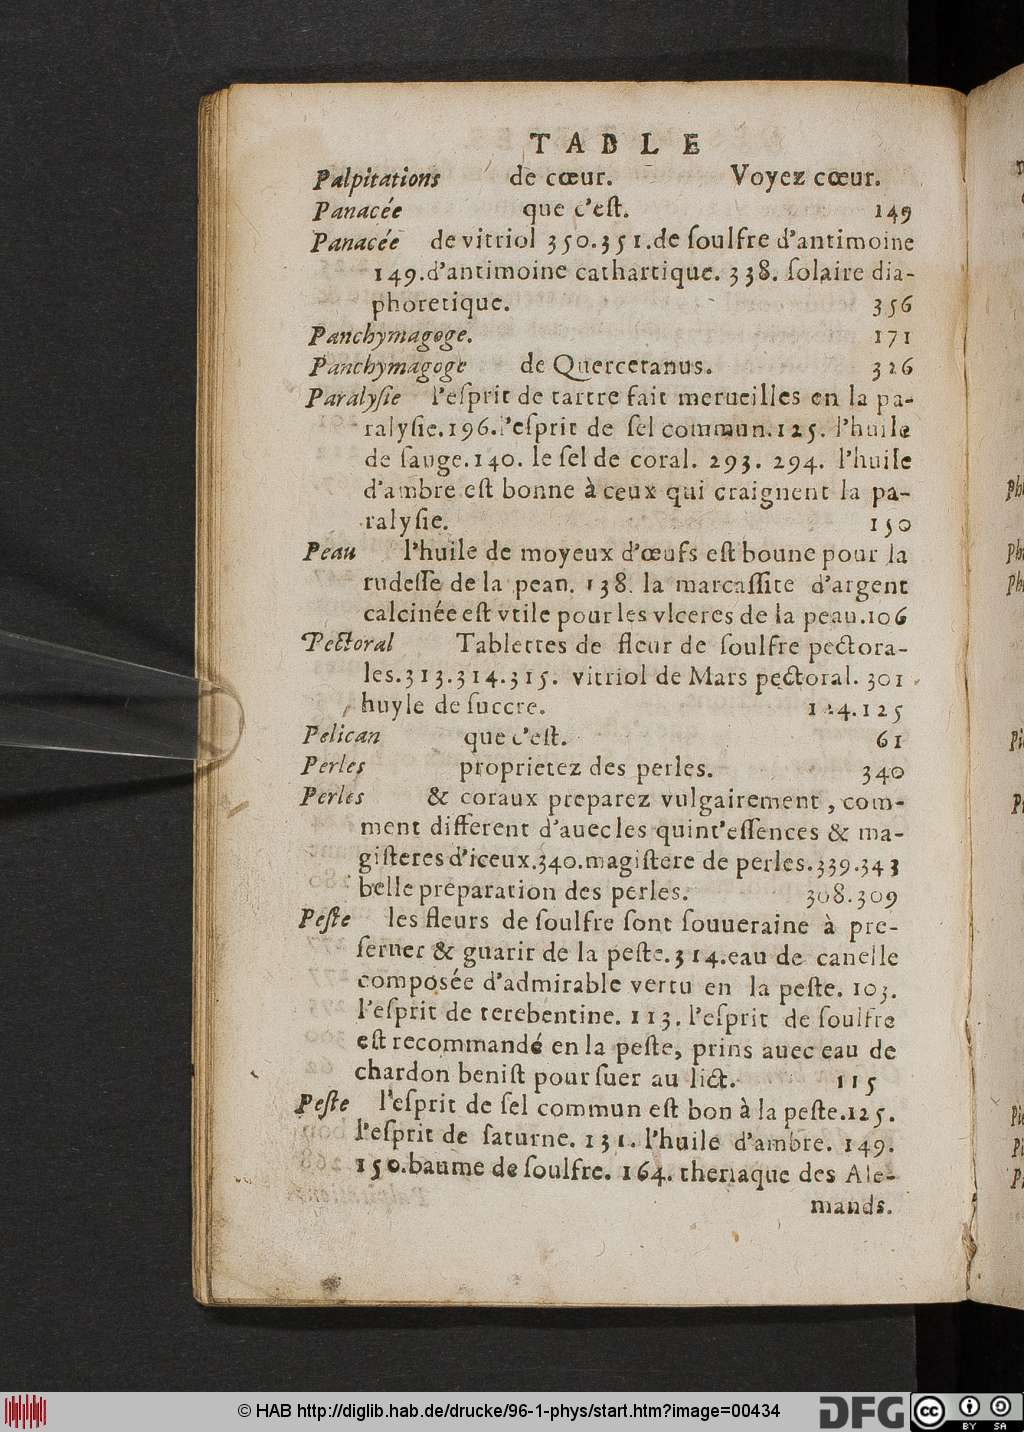 TABLE
Palpitations de cœur. Voyez cœur.
Panacée que c'eſt. 149
Panacée de vitriol 350.351.de ſoulfre d'antimoine
149.d'antimoine cathartique. 338. ſolaire dia-
phoretique. 356
Panchymagoge. 171
Panchymagoge de Quercetanus. 326
Paralyſie l'eſprit de tartre fait merueilles en la pa-
ralyſie.196.l'eſprit de ſel commun.125. l'huile
de ſauge.140. le ſel de coral. 293. 294. l'huile
d'ambre eſt bonne à ceux qui craignent la pa-
ralyſie. 150
Peau l'huile de moyeux d'œufs eſt boune pour la
rudeſſe de la pean. 138. la marcaſſite d'argent
calcinée eſt vtile pour les vlceres de la peau.106
Pectoral Tablettes de fleur de ſoulfre pectora-
les.313.314.315. vitriol de Mars pectoral. 301
huyle de ſuccre. 124.125
Pelican que c'eſt. 61
Perles proprietez des perles. 340
Perles & coraux preparez vulgairement , com-
ment different d'auec les quint'eſſences & ma-
giſteres d'iceux.340.magiſtere de perles.339.343
belle preparation des perles. 308.309
Peſte les fleurs de ſoulfre ſont ſouueraine à pre-
ſeruer & guarir de la peſte.314.eau de canelle
composée d'admirable vertu en la peſte. 103.
l'eſprit de terebentine. 113. l'eſprit de ſoulfre
eſt recommandé en la peſte, prins auec eau de
chardon beniſt pour ſuer au lict. 115
Peſte l'eſprit de ſel commun eſt bon à la peſte.125.
l'eſprit de ſaturne. 131. l'huile d'ambre. 149.
150.baume de ſoulfre. 164. theriaque des Ale-
mands.
© HAB http://diglib.hab.de/drucke/96-1-phys/start.htm?image=00434
DFG
cc BY SA